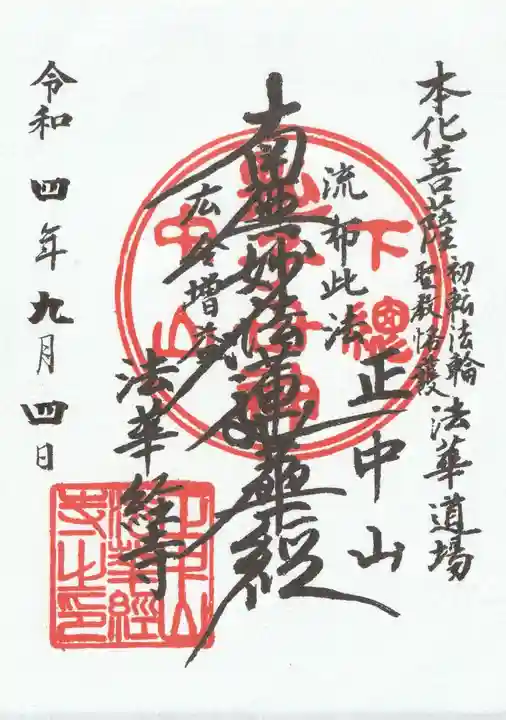 本化菩薩初転法輪
聖教格護法華道場
正中山
流布此法
南無妙法蓮華経
広令増益
法華経寺
令和四年九月四日
下總
中山